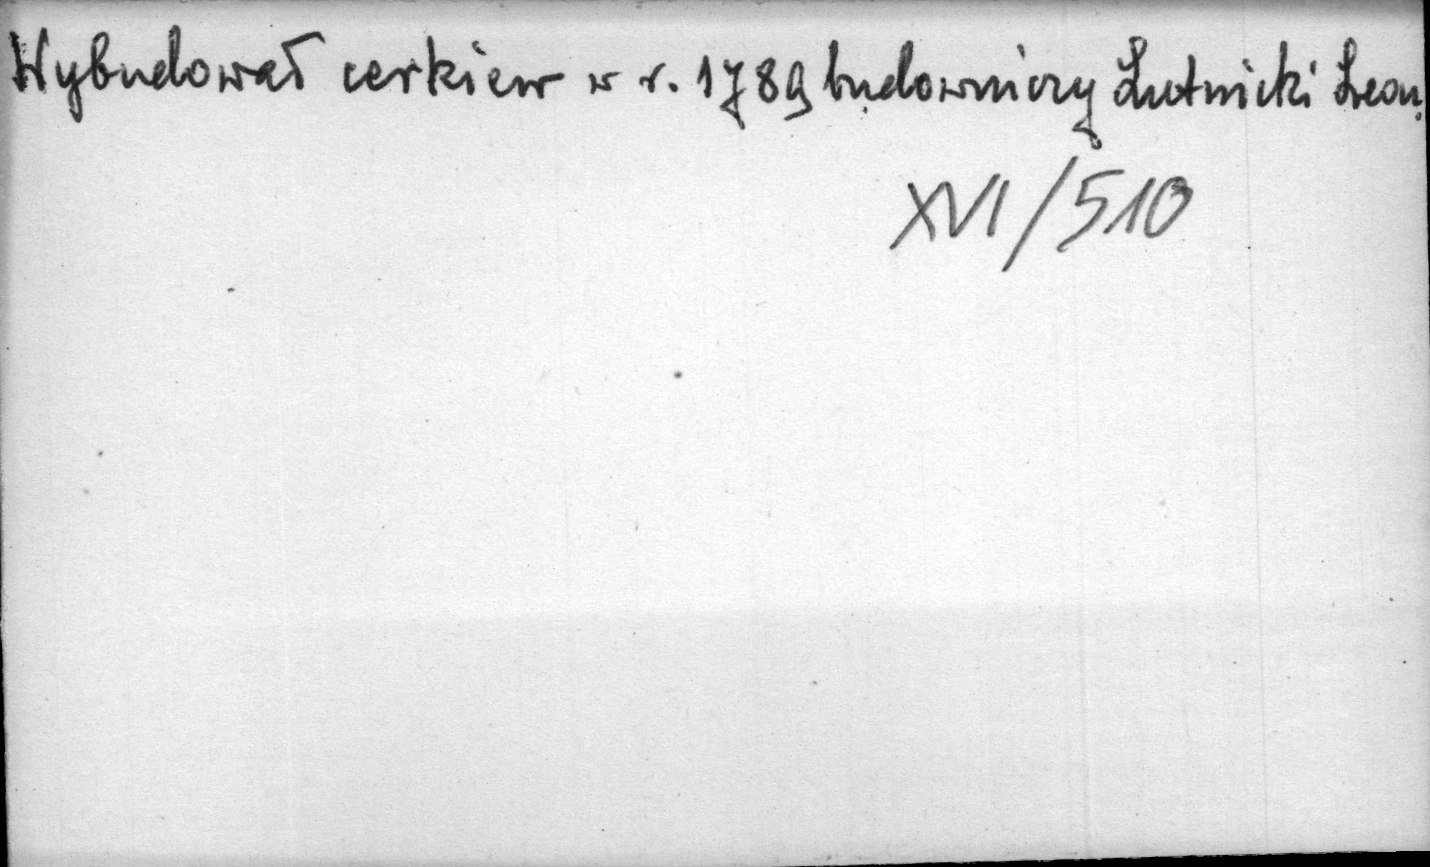 Wybudował cerkiew w r. 1789 budowniczy Lutnicki Leon.
XVI/510